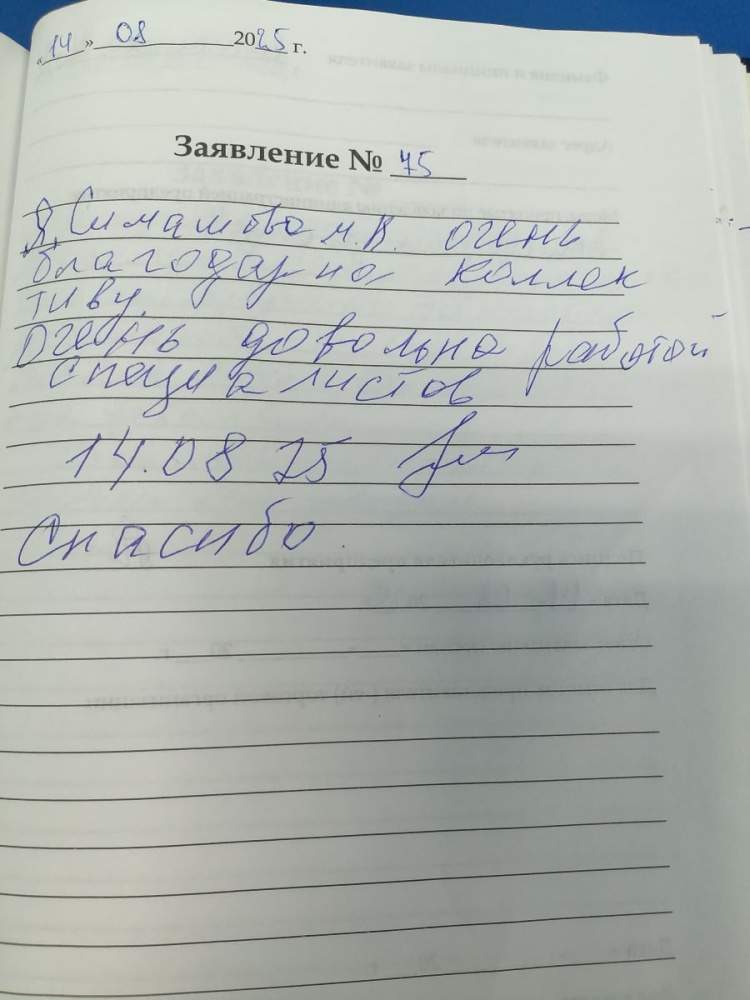 «14» 08 2025 г.
Заявление № 75
Я, Симашова М.В. очень
благодарна коллек
тиву.
Очень довольна работой
специалистов
14.08 25
Спасибо